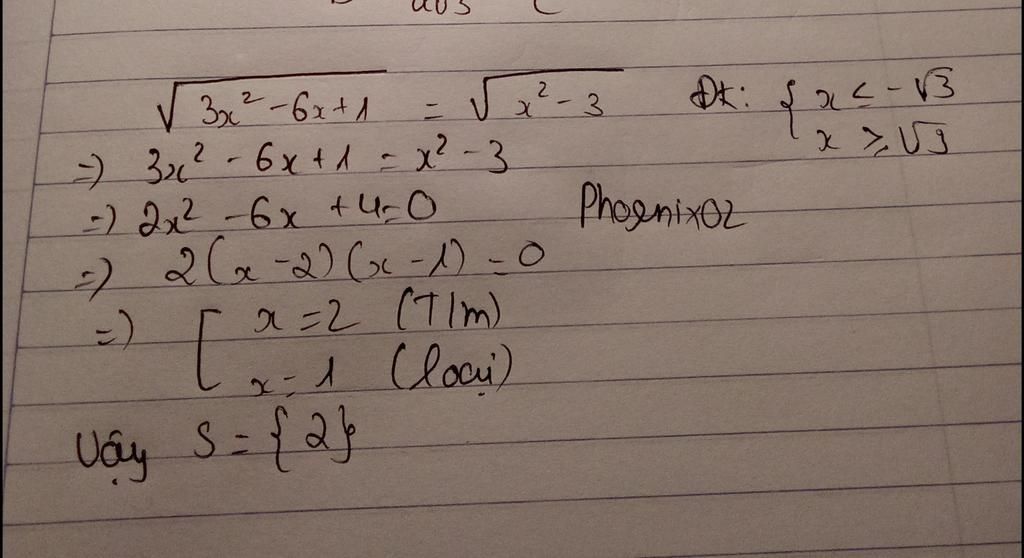 √(3x² - 6x + 1) = √(x² - 3) Đk: { x ≤ -√3
x ≥ √3
=) 3x² - 6x + 1 = x² - 3
=) 2x² - 6x + 4 = 0 Phoenix02
=) 2(x - 2)(x - 1) = 0
=) [ x = 2 (T/m)
x = 1 (loại)
Vậy S = {2}